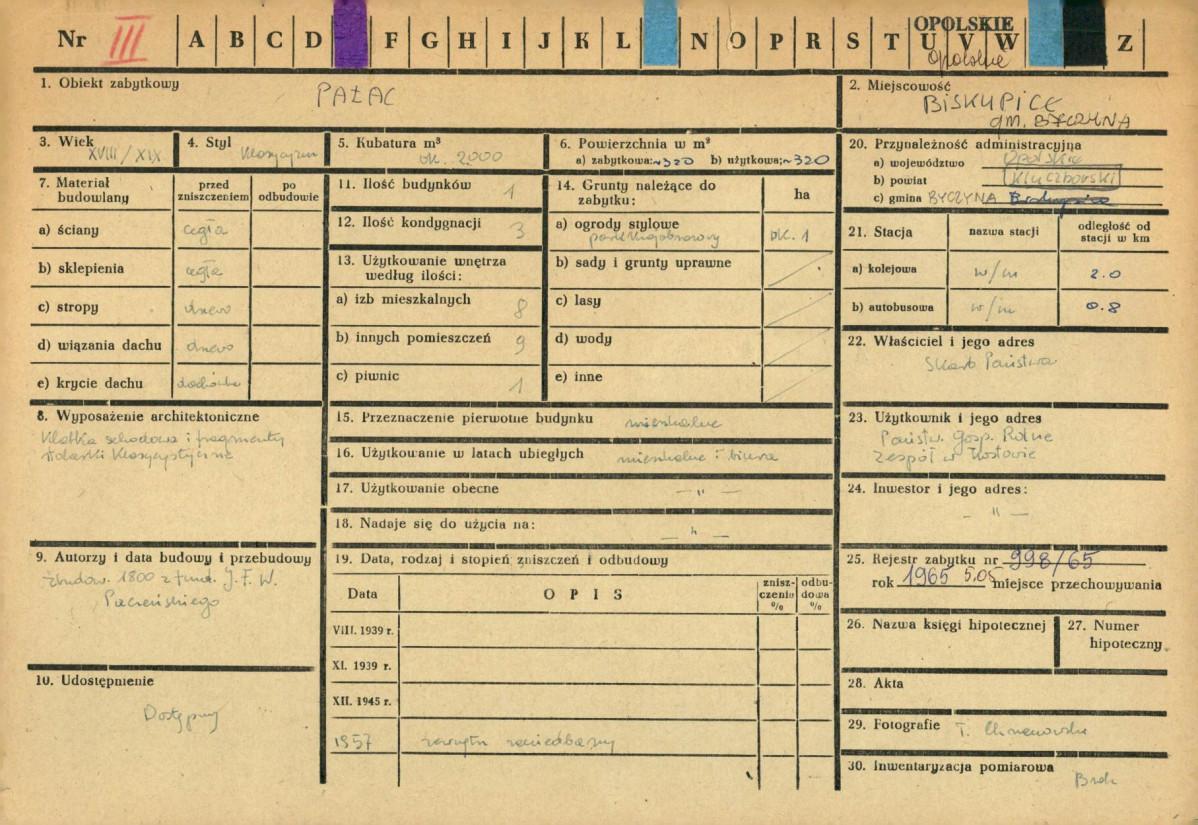 Nr III A B C D F G H I J K L N O P R S T U V W Z
OPOLSKIE
Opolskie
1. Obiekt zabytkowy
PAŁAC
2. Miejscowość
BISKUPICE
gm. BYCZYNA
3. Wiek
XVIII/XIX
4. Styl
Klasycyzm
5. Kubatura m³
ok. 2000
6. Powierzchnia w m²
a) zabytkowa: ~320 b) użytkowa: ~320
20. Przynależność administracyjna
a) województwo Opolskie
b) powiat Kluczborski
c) gmina BYCZYNA
7. Materiał budowlany
przed zniszczeniem
po odbudowie
a) ściany cegła
b) sklepienia cegła
c) stropy drewo
d) wiązania dachu drewo
e) krycie dachu dachówka
11. Ilość budynków 1
12. Ilość kondygnacji 3
13. Użytkowanie wnętrza według ilości:
a) izb mieszkalnych 8
b) innych pomieszczeń 9
c) piwnic 1
14. Grunty należące do zabytku:
ha
a) ogrody stylowe
park krajobrazowy ok. 1
b) sady i grunty uprawne
c) lasy
d) wody
e) inne
21. Stacja
nazwa stacji
odległość od stacji w km
a) kolejowa w/m 2.0
b) autobusowa w/m 0.8
22. Właściciel i jego adres
Skarb Państwa
8. Wyposażenie architektoniczne
Klatka schodowa i fragmenty
stolarki klasycystyczne
15. Przeznaczenie pierwotne budynku mieszkalne
16. Użytkowanie w latach ubiegłych mieszkalne i biura
17. Użytkowanie obecne — " —
18. Nadaje się do użycia na: — " —
23. Użytkownik i jego adres
Państw. Gosp. Rolne
Zespół w
24. Inwestor i jego adres:
— " —
9. Autorzy i data budowy i przebudowy
zbudow. 1800 z fund. J. F. W.
Paczeńskiego
19. Data, rodzaj i stopień zniszczeń i odbudowy
Data
OPIS
zniszczenia %
odbudowa %
VIII. 1939 r.
XI. 1939 r.
XII. 1945 r.
1957 zewnątrz zaniedbany
25. Rejestr zabytku nr 998/65
rok 1965 5.05 miejsce przechowywania
26. Nazwa księgi hipotecznej
27. Numer hipoteczny
28. Akta
10. Udostępnienie
Dostępny
29. Fotografie T. Chrzanowski
30. Inwentaryzacja pomiarowa
Brak